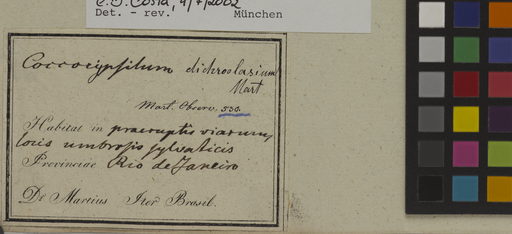 C. B. Costa, 4/7/2002
Det. - rev. München
Coccocypsilum dichroolasium
Mart
Mart. Observ. 530.
Habitat in praeruptis viarum,
locis umbrosis sylvaticis
Provinciae Rio de Janeiro
Dr Martius Iter Brasil.